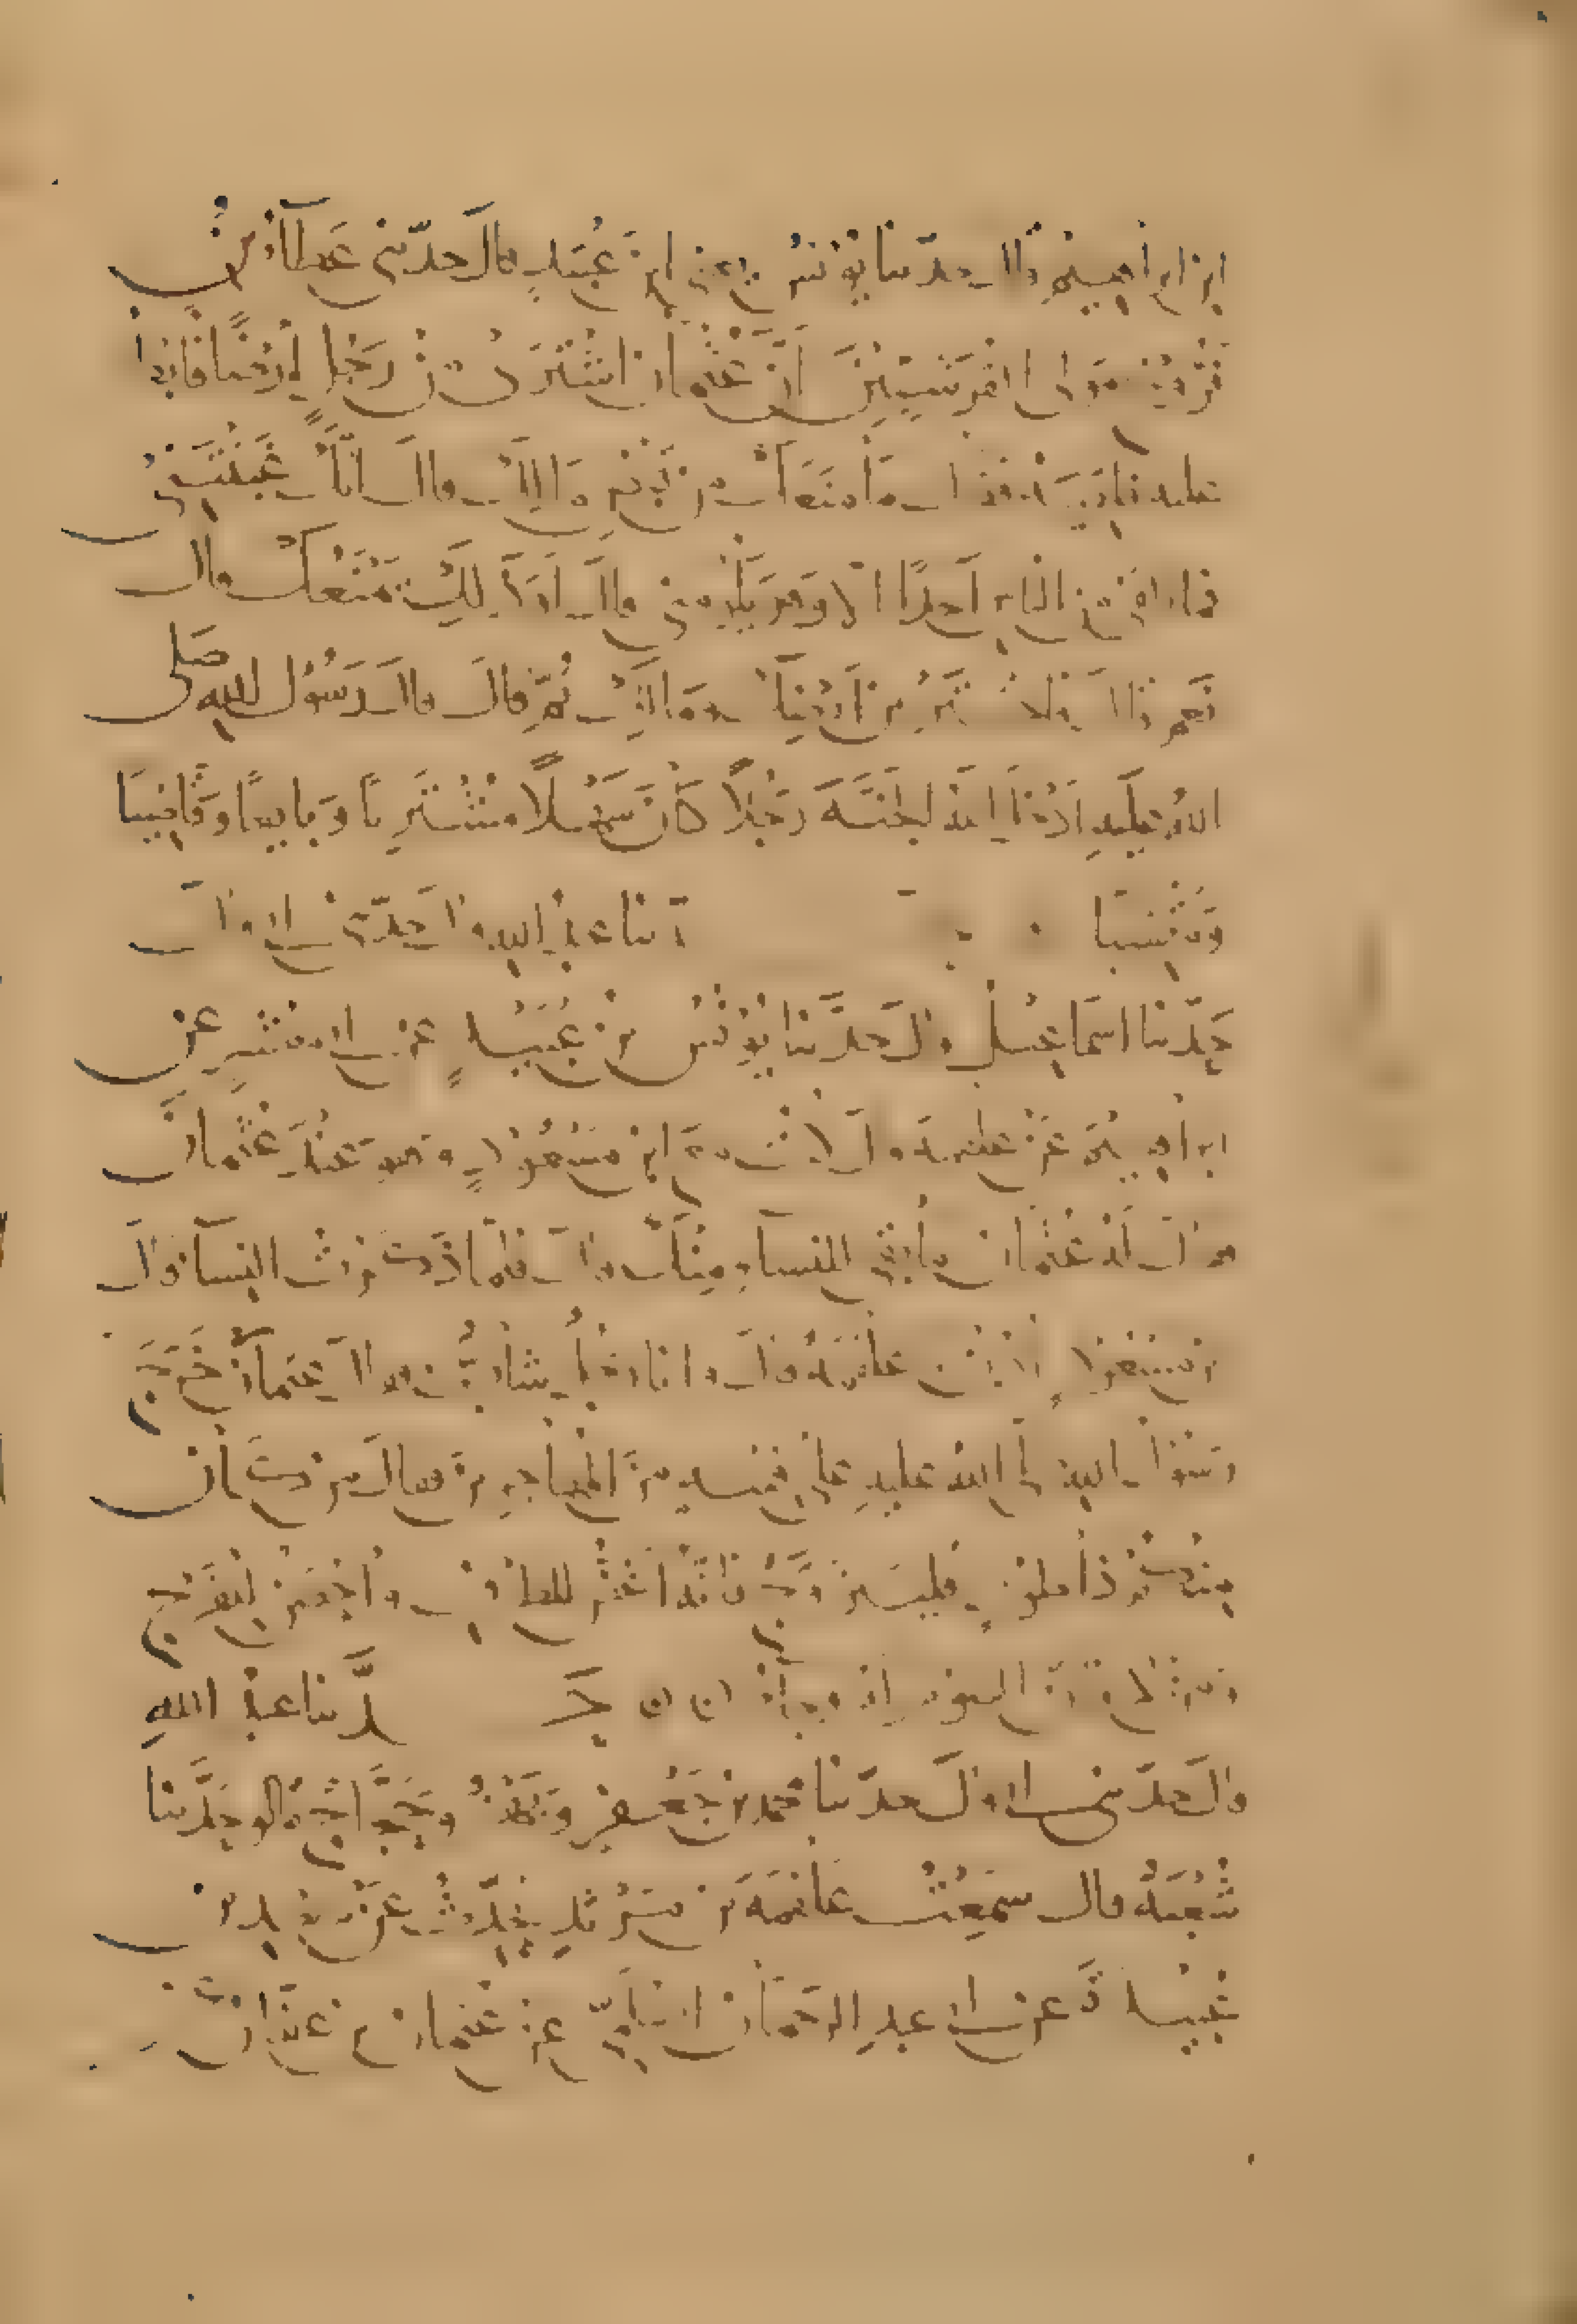 ابن ابراهيم قال حدثنا يونس يعني ابن عُبَيدٍ قال حدّثني عَطآءُ بن
فَرُّوخَ مولى القُرَشِيِّينَ اَنَّ عُثمانَ اشتَرى مِن رَجُلٍ اَرضًا فابطأ
عليه فلقيَهُ فقال مَا مَنَعَكَ مِن قَبْضِ مَالِكَ قالَ اِنَّكَ غَبَنْتَنِي
فما القى من الناسِ اَحدًا الا وهو يَلُومُني قالَ اَوَذَلِكَ يَمْنَعُكَ قال
نَعم قال فاختَر بين اَرضِكَ ومَالِكَ ثُمَّ قالَ قالَ رَسُول اللهِ صَلى
اللهُ عليهِ اَدْخَلَ اللهُ الجَنَّةَ رَجُلًا كَانَ سَهْلًا مُشْتَرِيًا وَبايِعًا وَقاضِيًا
وَمُقْتَضِيًا حدثنا عبدُ اللهِ قالَ حدّثني ابي قالَ
حَدّثنا اسمَاعِيلُ قالَ حدَّثنا يُونُسُ بن عُبَيْدٍ عن ابي مَعْشَرٍ عن
ابراهِيمَ عَن علقمةَ قالَ كُنتُ مع ابنِ مَسْعُودٍ وهوَ عِندَ عُثمانَ
فقالَ لَهُ عُثمَانُ ما بَقِيَ للنِّسآءِ مِنكَ قالَ فلمّا ذُكِرَتِ النِّسآءُ قالَ
ابن مَسْعُودٍ اُدْنُ يا علقمةُ قالَ وانا رَجُلٌ شَابٌّ فقالَ عثمانُ خَرَجَ
رَسُولُ اللهِ صلى اللهُ عليهِ على فِتْيَةٍ منَ المُهاجِرِينَ فقالَ من كَانَ
مِنكُم ذا طَوْلٍ فليتَزَوَّج فانَّهُ اَغَضُّ للطَّرْفِ واَحْصَنُ لِلفَرْجِ
ومن لا فانَّ الصومَ لهُ وِجَآءٌ حَدَّثنا عبدُ اللهِ
قالَ حدّثني ابي قالَ حدّثنا محمد بن جَعْفَرٍ وَبَهْزٌ وحَجَّاجٌ قالوا حَدَّثنا
شُعْبَةُ قال سَمِعْتُ عَلْقَمَةَ بنَ مَرْثَدٍ يُحَدِّثُ عَن سَعْدِ بن
عُبَيْدَةَ عن ابي عبدِ الرَّحمَانِ السُّلَمِيِّ عن عُثمانَ بنِ عَفَّانَ